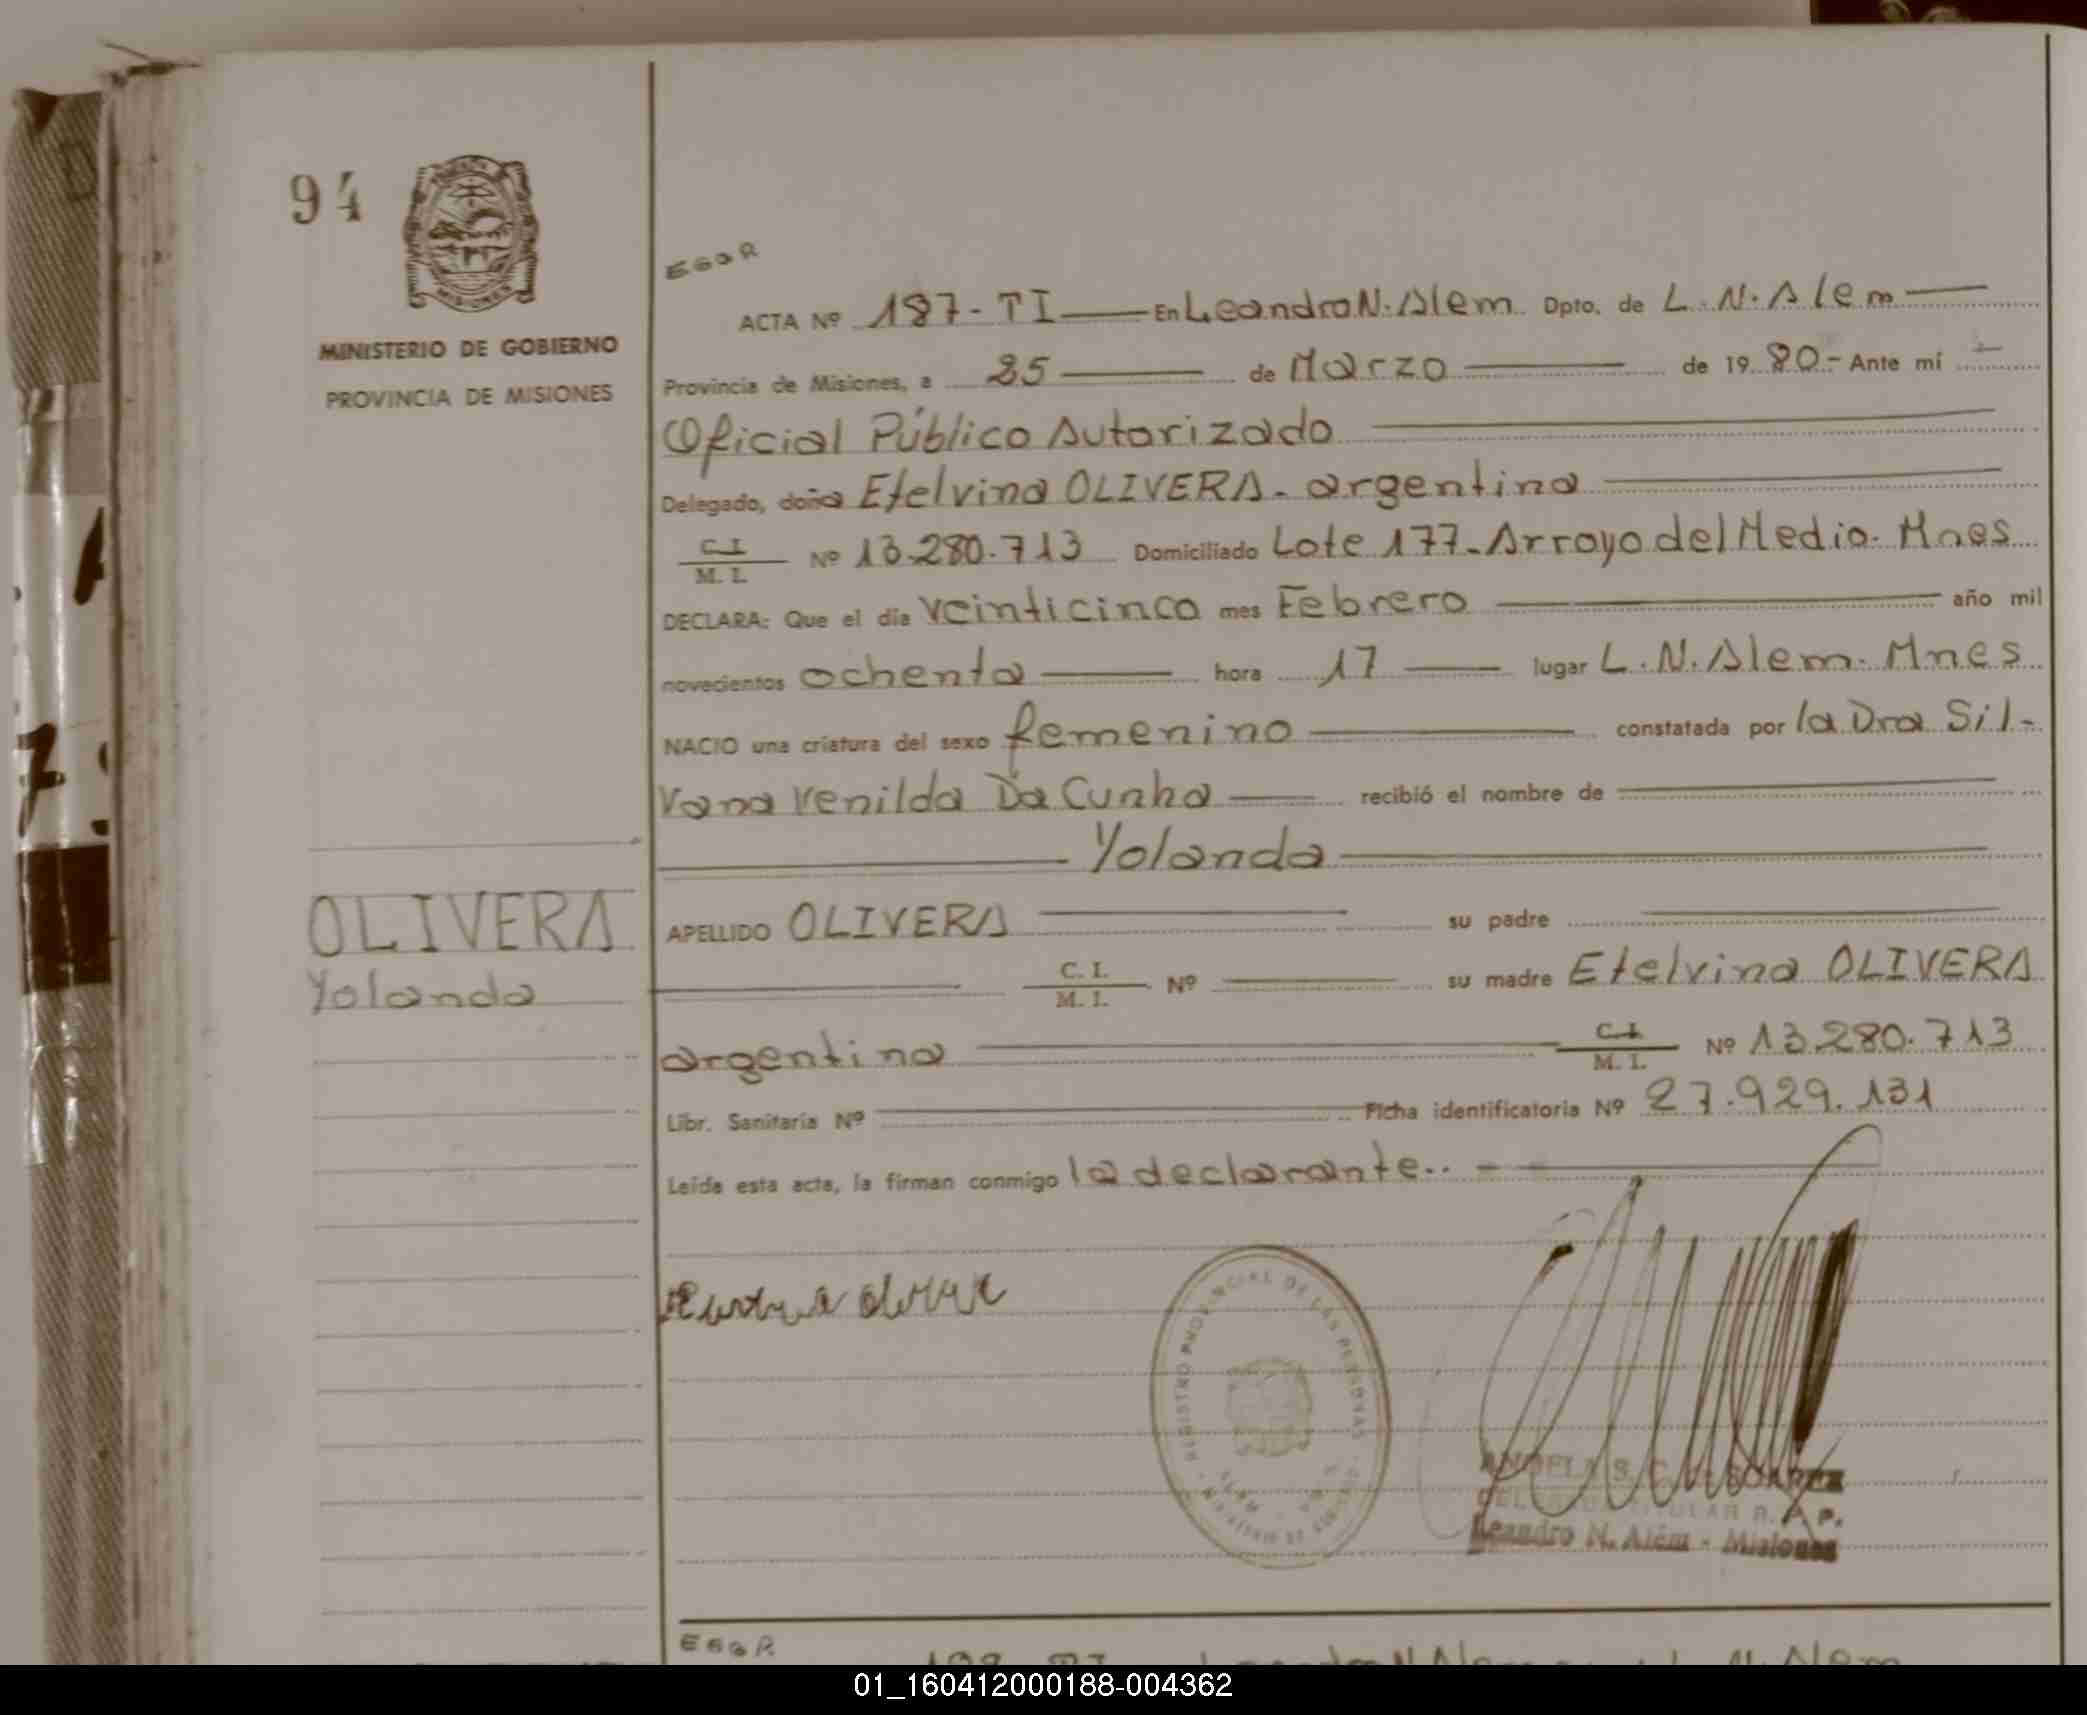 94
MISIONES
MINISTERIO DE GOBIERNO
PROVINCIA DE MISIONES
OLIVERA
Yolanda
ACTA Nº 187-TI En Leandro N. Alem Dpto. de L. N. Alem
Provincia de Misiones, a 25 de Marzo de 1980.- Ante mí
Oficial Público Autorizado
Delegado, doña Etelvina OLIVERA - argentina
C. I. / M. I. Nº 13.280.713 Domiciliado Lote 177 - Arroyo del Medio. Mnes
DECLARA: Que el día veinticinco mes Febrero año mil
novecientos ochenta hora 17 lugar L. N. Alem. Mnes
NACIO una criatura del sexo femenino constatada por la Dra Sil-
vana Venilda Da Cunha recibió el nombre de
Yolanda
APELLIDO OLIVERA su padre
C. I. / M. I. Nº su madre Etelvina OLIVERA
argentina C. I. / M. I. Nº 13.280.713
Libr. Sanitaria Nº Ficha identificatoria Nº 27.929.131
Leída esta acta, la firman conmigo la declarante..
REGISTRO PROVINCIAL DE LAS PERSONAS
DELEGADO TITULAR R. P. P.
Leandro N. Além - Misiones
01_160412000188-004362